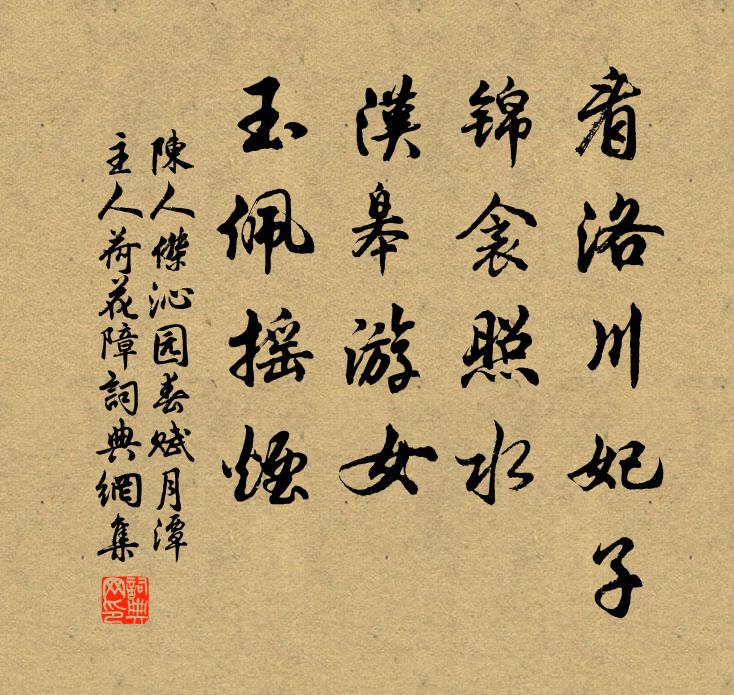 看洛川妃子
锦衾照水
漢皋游女
玉佩摇煙
陳人傑沁园春赋月潭
主人荷花障詞典網集
詞典网印